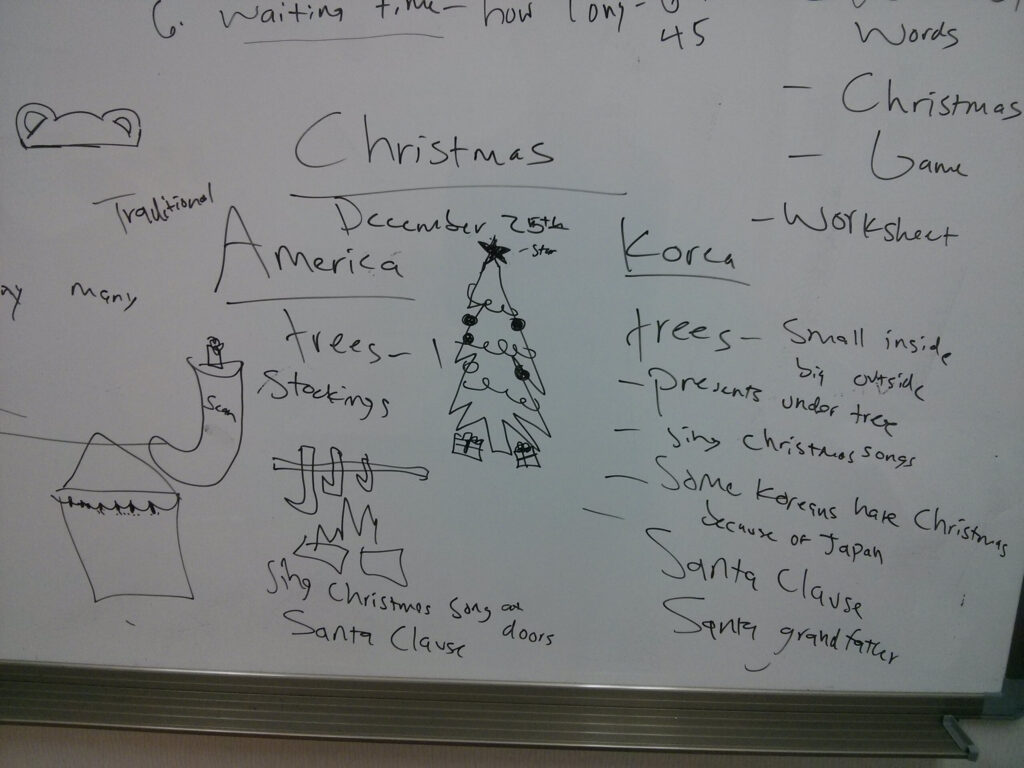 6. Waiting time - how long -
45
Words
- Christmas
- Game
- Worksheet
Christmas
December 25th
Traditional
America
- Star
Korea
many
trees -
Stockings
Sean
Sing Christmas Song at
doors
Santa Clause
trees - Small inside
big outside
- presents under tree
- Sing Christmas songs
- Some Koreans have Christmas
because of Japan
- Santa Clause
Santa grandfather